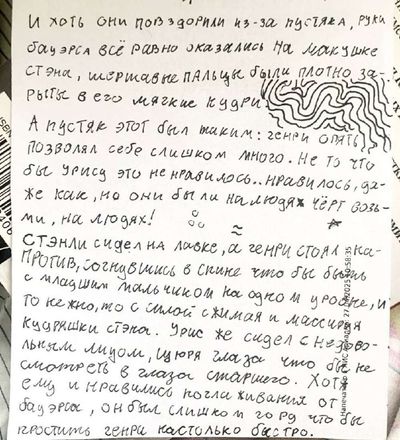 И хоть они повздорили из-за пустяка, руки
бауэрса всё равно оказались на макушке
стэна, шершавые пальцы были плотно за-
рыты в его мягкие кудри.
А пустяк этот был таким: генри опять
позволял себе слишком много. Не то что
бы урису это не нравилось.. нравилось, да-
же как, но они были на людях чёрт возь-
ми, на людях!
Стэнли сидел на лавке, а генри стоял на-
против, согнувшись в спине что бы быть
с младшим мальчиком на одном уровне, и
то нежно, то с силой сжимая и массируя
кудряшки стэна. Урис же сидел с недово-
льным лицом, щюря глаза что бы не
смотреть в глаза старшего. Хоть
ему и нравились поглаживания от
бауэрса, он был слишком горд что бы
простить генри настолько быстро.
ISBN